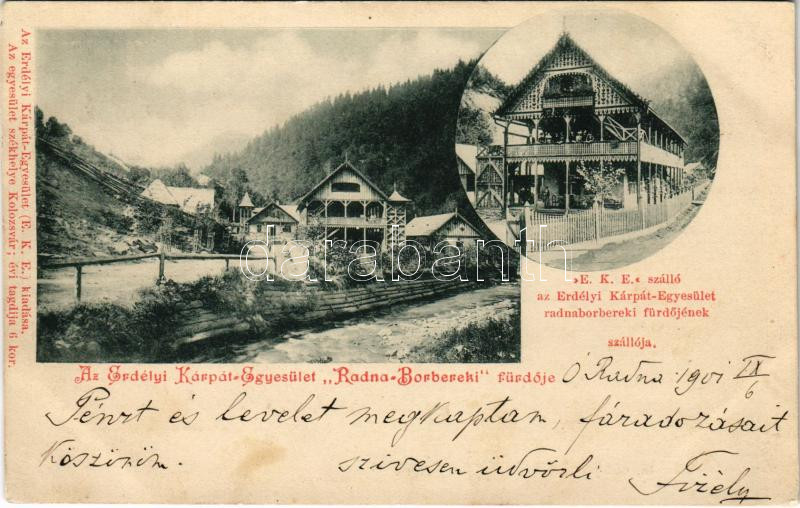 Az Erdélyi Kárpát-Egyesület (E. K. E.) kiadása.
Az egyesület székhelye Kolozsvár; évi tagdija 6 kor.
darabanth
»E. K. E.« szálló
az Erdélyi Kárpát-Egyesület
radnaborbereki fürdőjének
szállója.
Az Erdélyi Kárpát-Egyesület „Radna-Borbereki" fürdője
Ó Radna 1901 IX/6
Pénzt és levelet megkaptam, fáradozásait
köszönöm. szivesen üdvözli